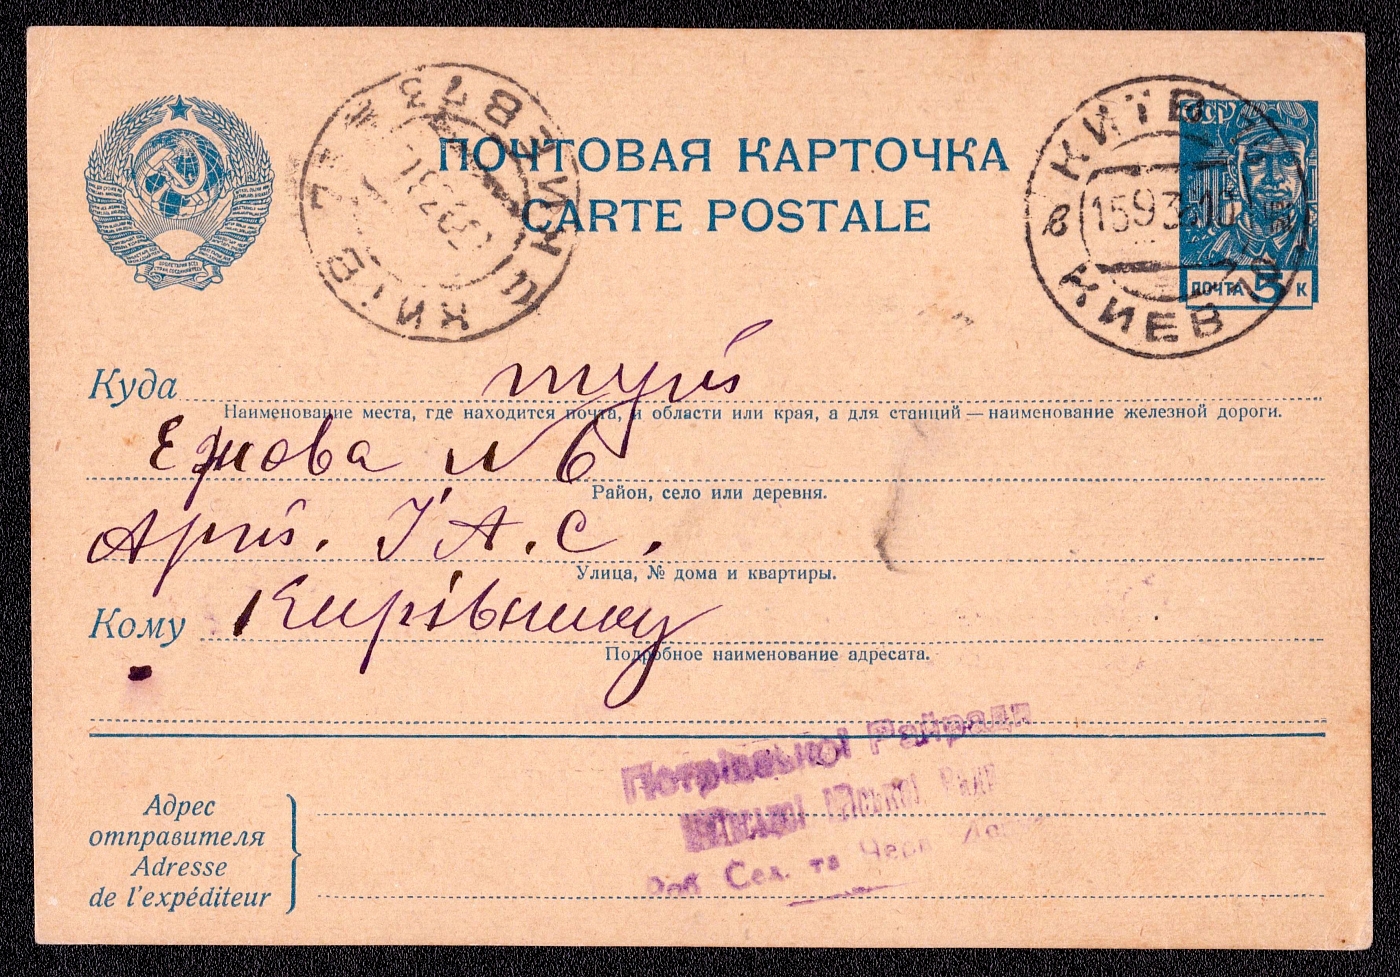 ПОЧТОВАЯ КАРТОЧКА
CARTE POSTALE
КИЇВ
КИЕВ
КИЇВ
СССР
ПОЧТА 5 К
Куда
Наименование места, где находится почта, и области или края, а для станций — наименование железной дороги.
Ежова № 6
Район, село или деревня.
Улица, № дома и квартиры.
Кому Керівнику
Подробное наименование адресата.
Петрівської Райради
Міської Ради
Роб. Сел. та Черв.
Адрес
отправителя
Adresse
de l'expéditeur